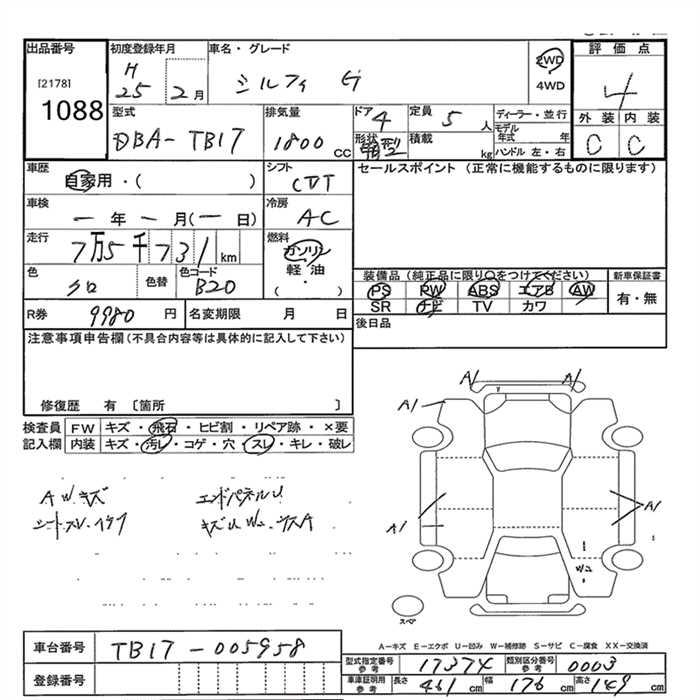 出品番号 初度登録年月 車名・グレード 2WD 4WD 評価点
[2178] 1088 H 25 2月 シルフィ G 4
型式 排気量 ドア 4 定員 5人 ディーラー・並行 外装 内装
DBA-TB17 1800cc 形状 箱型 積載 kg モデル年式 年 ハンドル 左・右 C C
車歴 自家用・( ) シフト CVT セールスポイント (正常に機能するものに限ります)
車検 一年一月(一日) 冷房 AC
走行 7万5千731km 燃料 ガソリン 軽油 ・ ( )
色 クロ 色替 色コード B20 装備品 (純正品に限り○をつけてください) 新車保証書
PS PW ABS エアB AW 有・無
SR ナビ TV カワ
R券 9980円 名変期限 月 日 後日品
注意事項申告欄(不具合内容等は具体的に記入して下さい)
修復歴 有 〔箇所 〕
検査員 FW キズ・飛石・ヒビ割・リペア跡・×要
記入欄 内装 キズ・汚レ・コゲ・穴・スレ・キレ・破レ
A1 A1
A1
AWキズ エンドパネルU
A1
A1
W2
スペア
A-キズ E-エクボ U-凹み W-補修跡 S-サビ C-腐食 XX-交換済
車台番号 TB17-005958
型式指定番号 参考 17374 類別区分番号 参考 0003
登録番号 車庫証明用 参考 長さ 461cm 幅 176cm 高さ 149cm